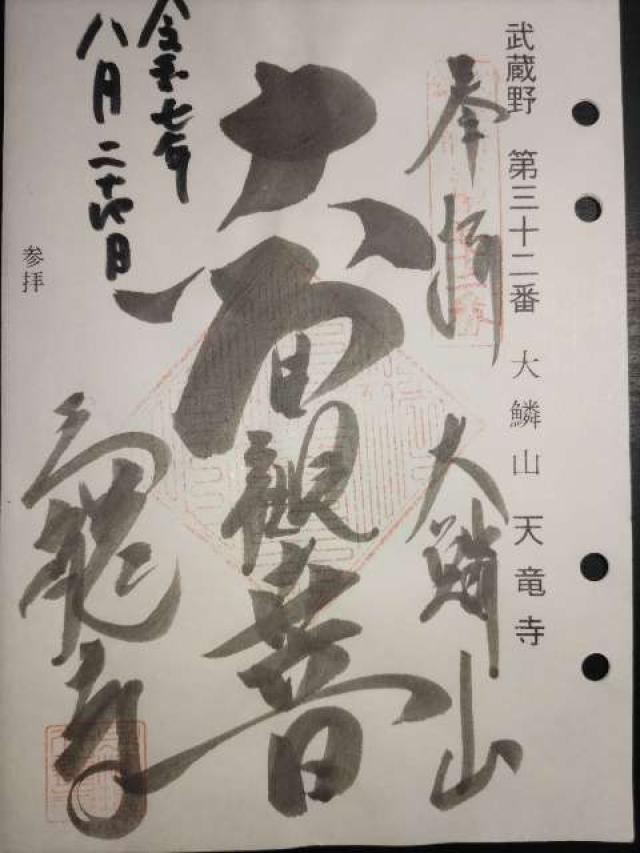 武蔵野 第三十二番 大鱗山 天竜寺
奉拝 大鱗山
十一面観音
令和七年
八月二十四日
天龍寺
参拝